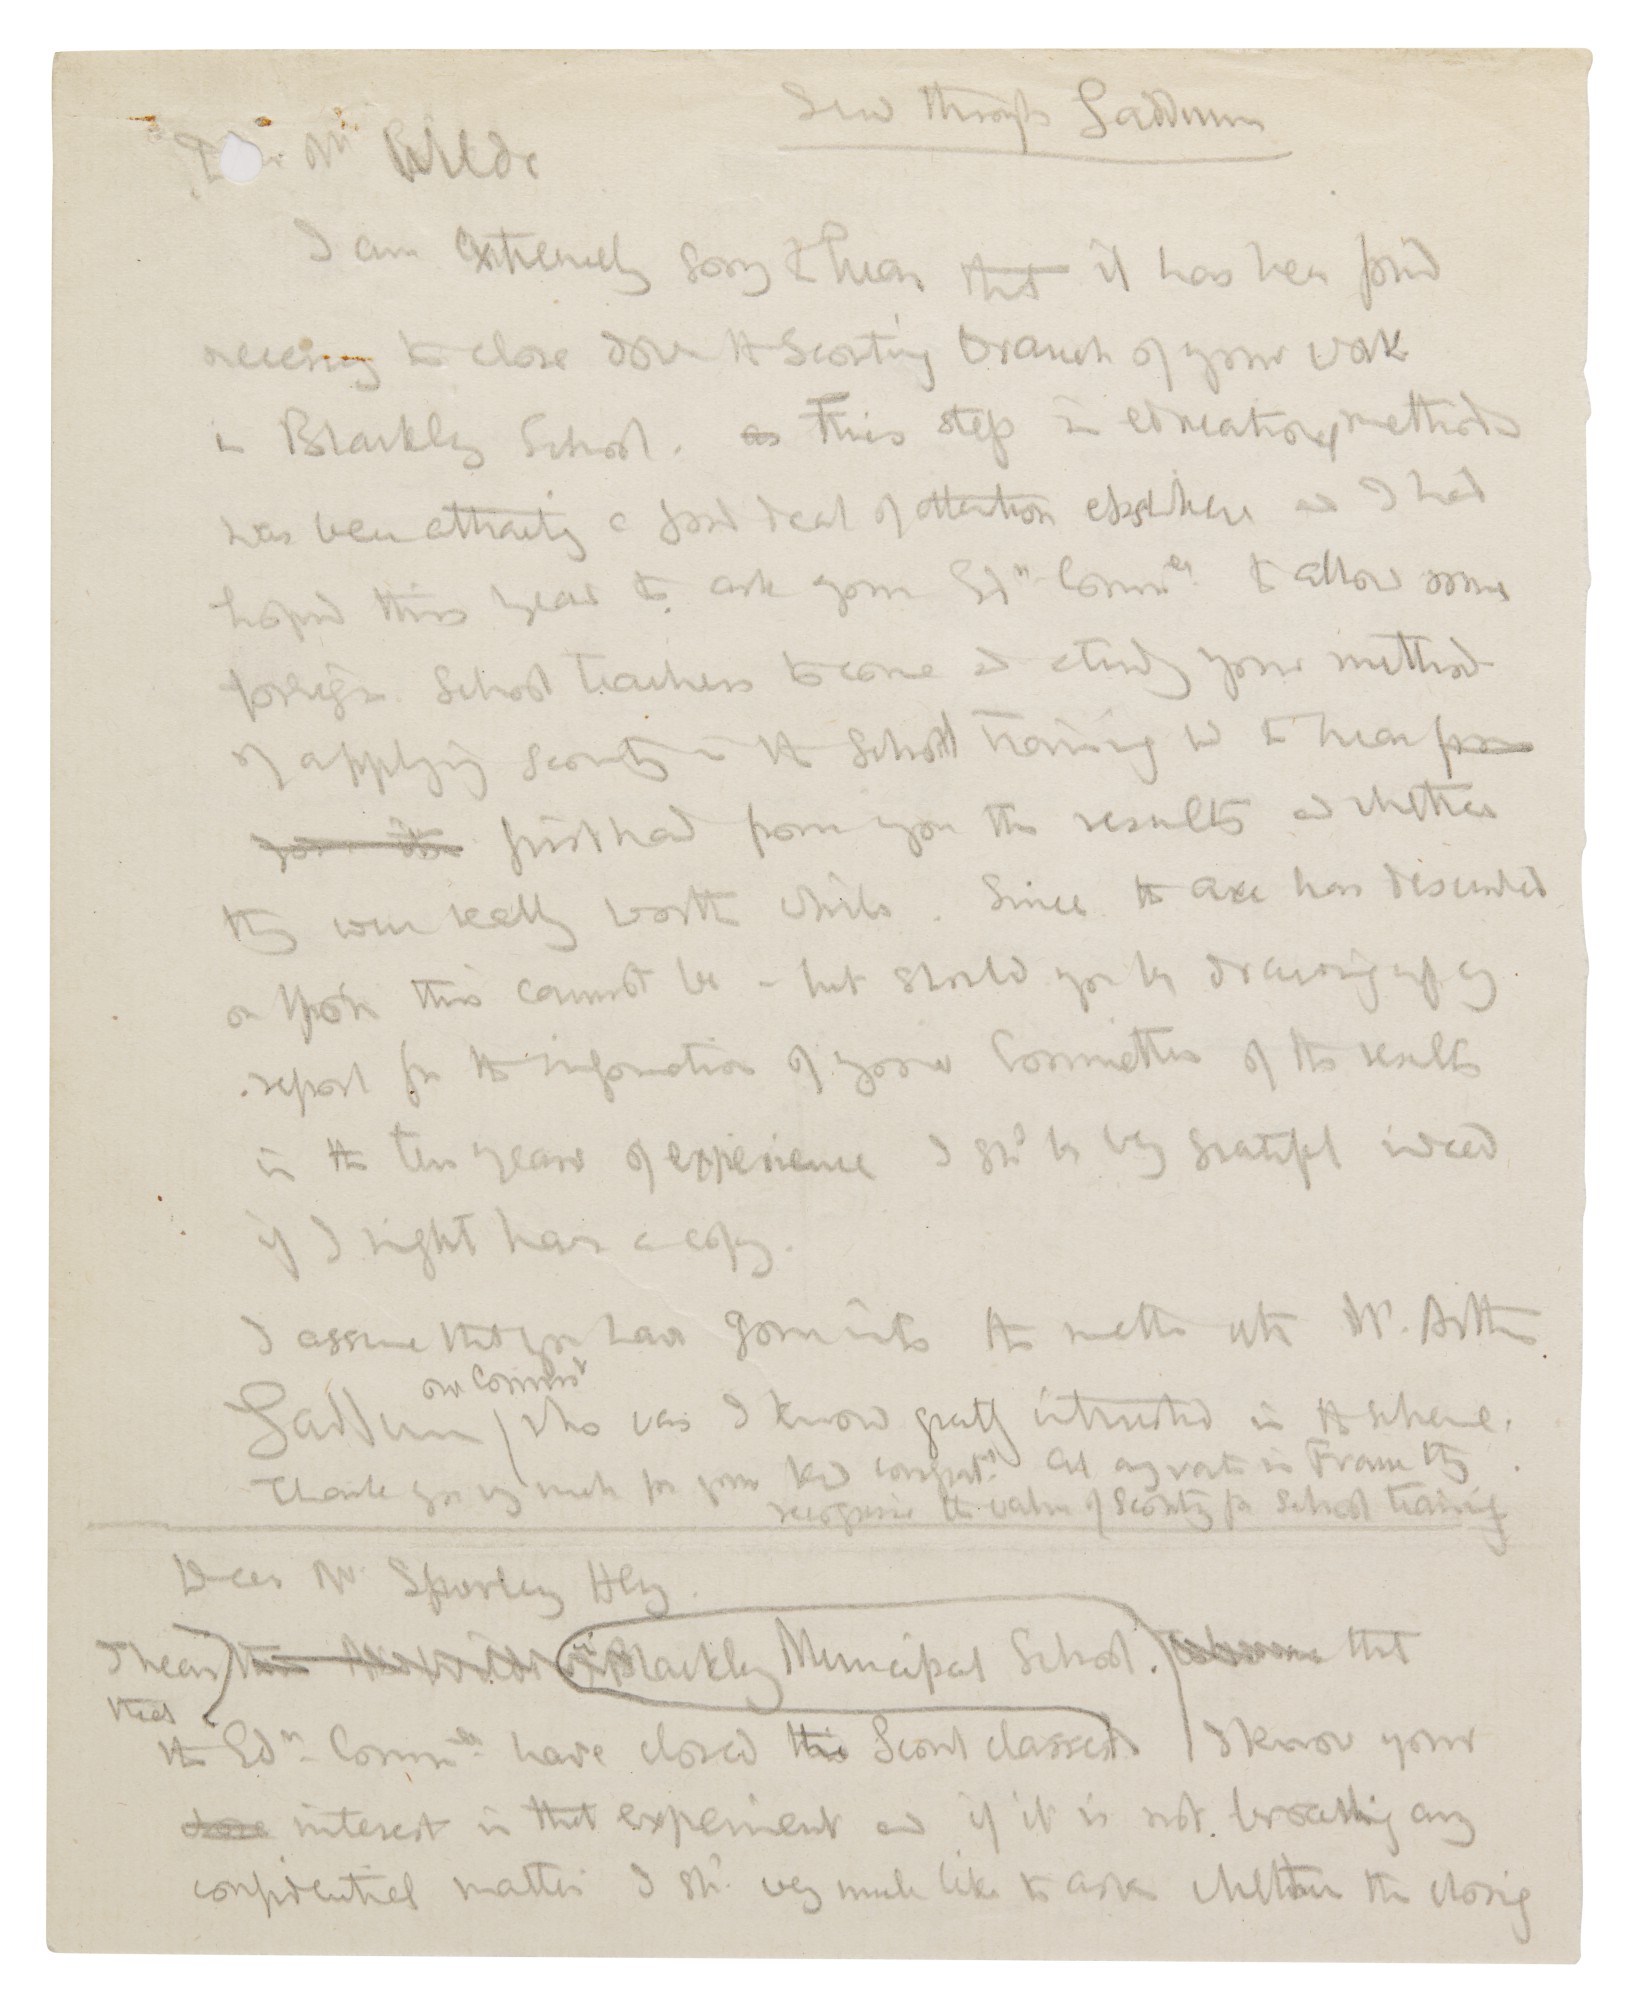 Send through Gaddum
Dear Mr Wilde
I am extremely sorry to hear that it has been found
necessary to close down the Scouting branch of your work
in Blackley School. as This step in educational methods
has been attracting a good deal of attention elsewhere and I had
hoped this year to ask your Edn. Commtee to allow some
foreign School teachers to come and study your method
of applying scouting in the School training and to hear from
first hand from you the results and whether
they were really worth while. Since the axe has descended
upon this cannot be - but should you be drawing up any
report for the information of your Committee of the results
in the ten years of experience I shd be very grateful indeed
if I might have a copy.
I assume that you have gone into the matter with Mr. Arthur
Gaddum our Commsr who was I know greatly interested in the scheme.
Thank you very much for your kind congratns. At any rate in France they
recognise the value of Scouting for School training
Dear Mr Spurley Hey.
I hear in Blackley Municipal School. that
that
the Edn. Commtee have closed the Scout classes I know your
interest in that experiment and if it is not breaking any
confidential matter I shd. very much like to ask whether the closing